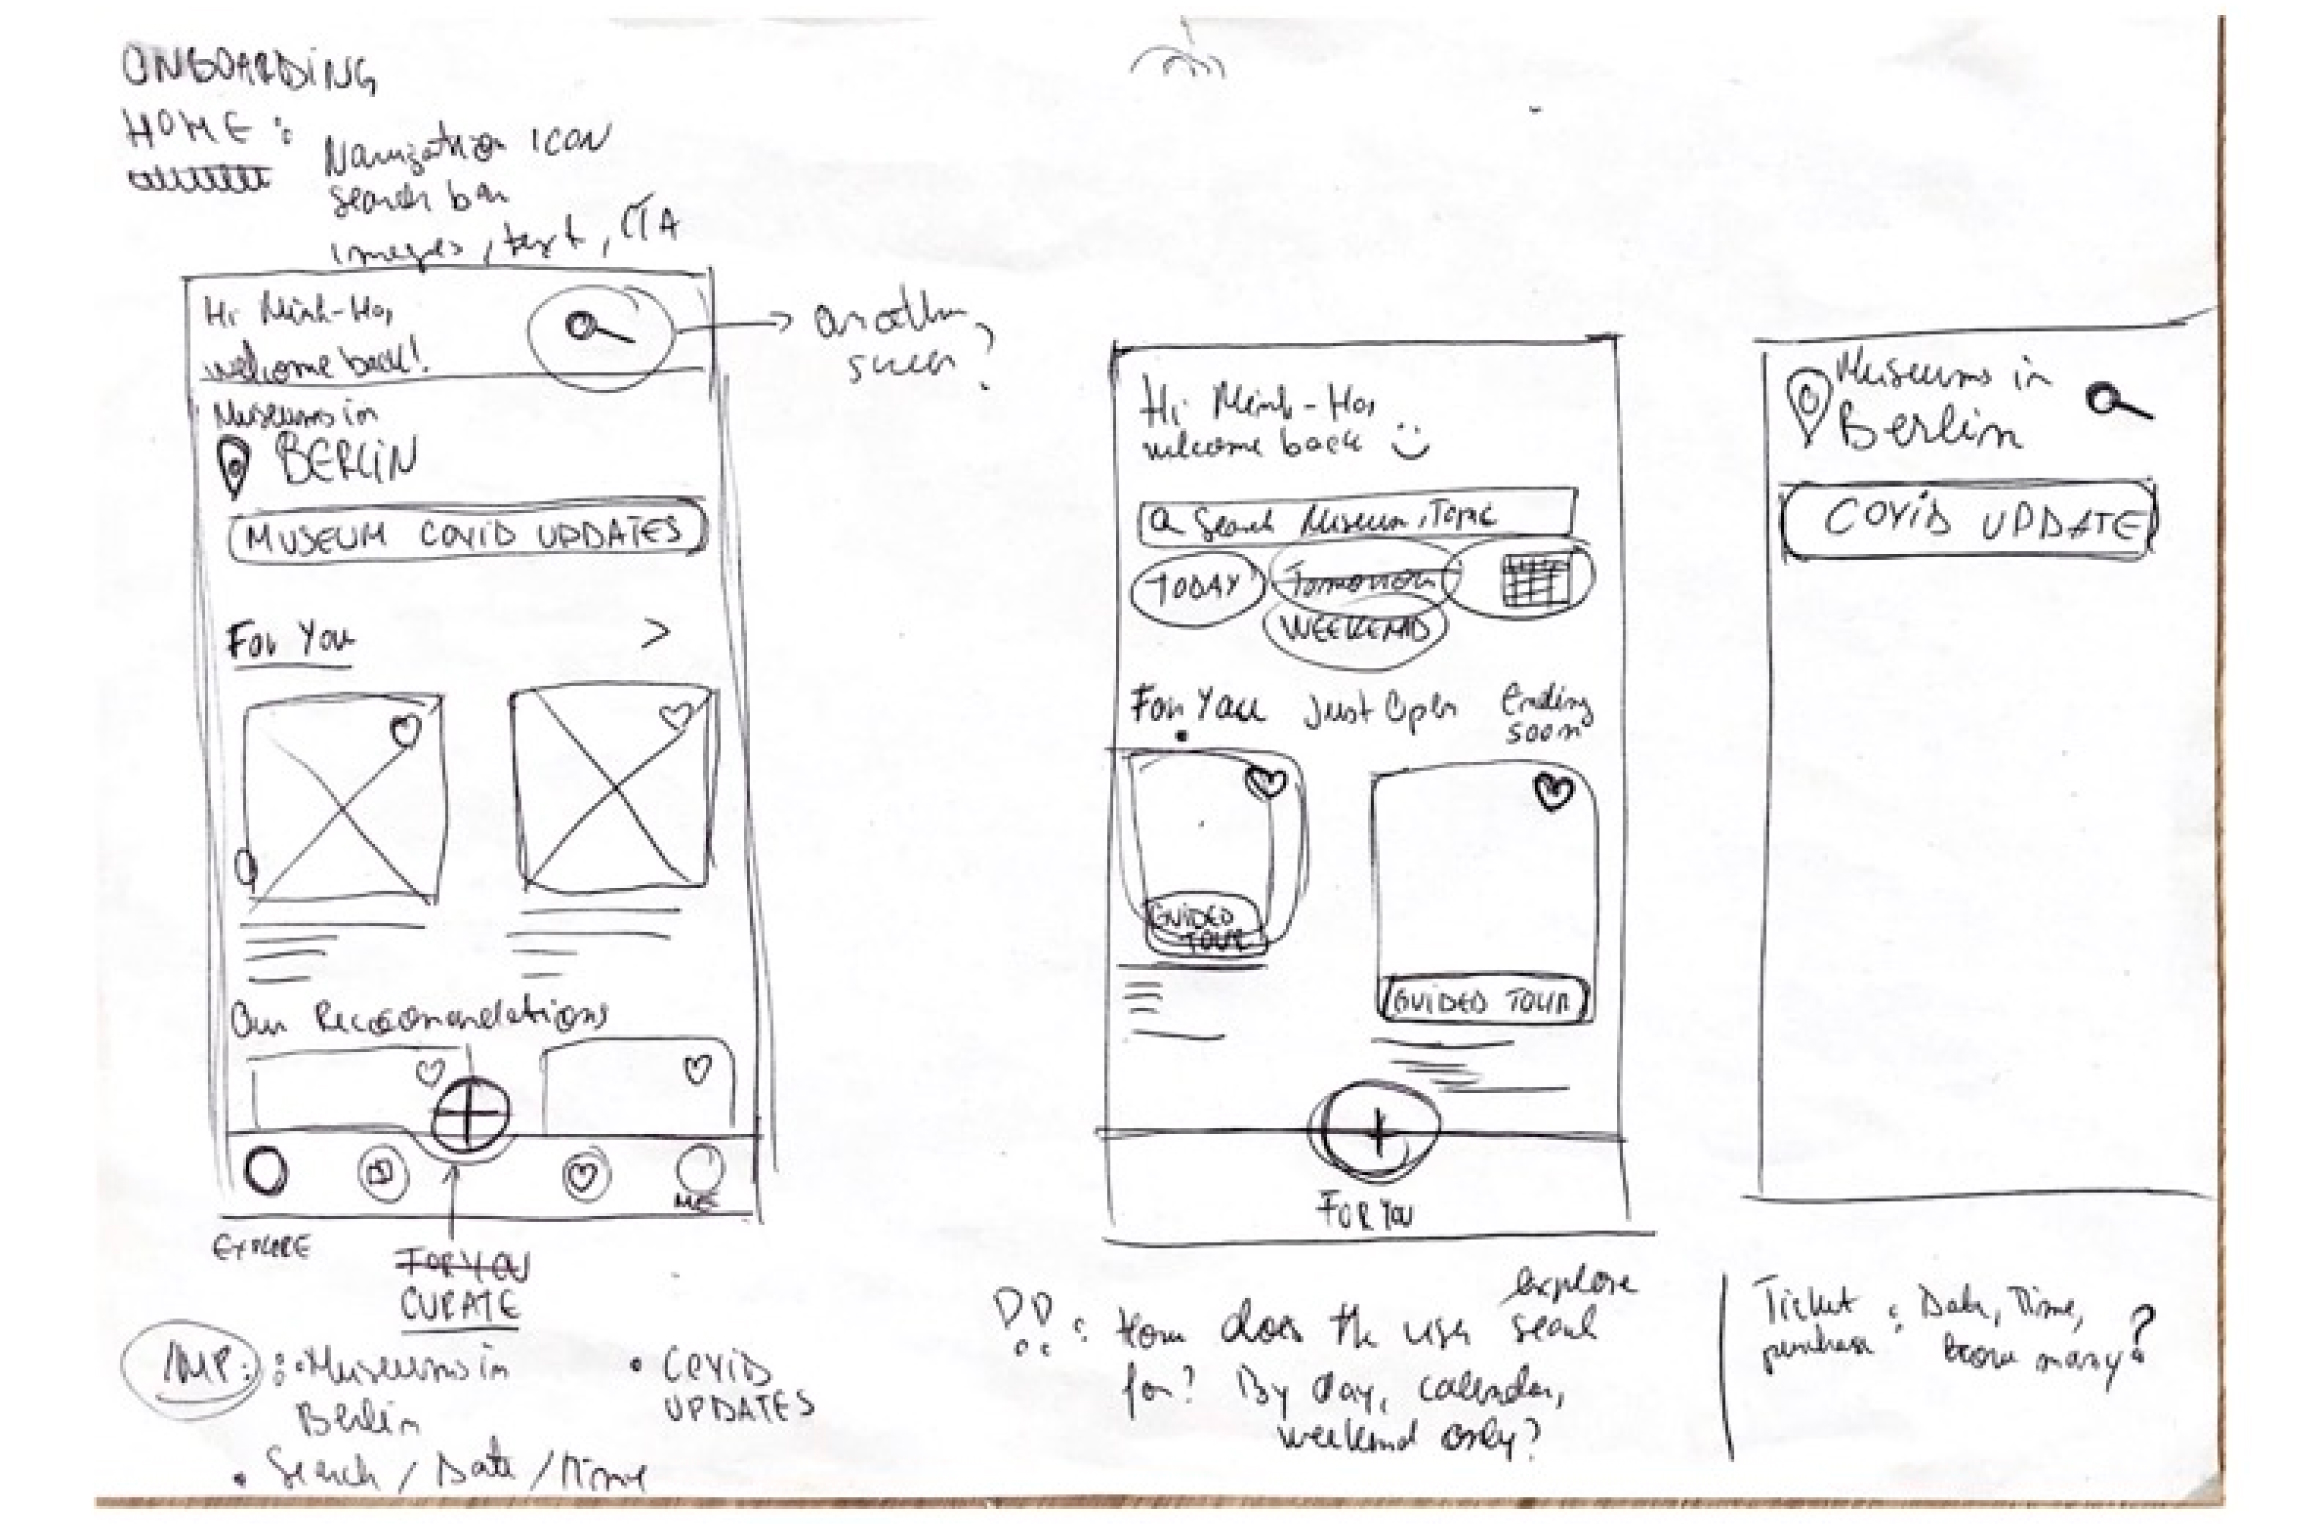 ONBOARDING
HOME:
Navigation ICON
search bar
images, text, CTA
Hi Minh-Hoy
welcome back!
another
screen?
Museums in
BERLIN
MUSEUM COVID UPDATES
For You >
Our Reccomandations
ME
EXPLORE
FOR YOU
CURATE
IMP: Museums in
Berlin
• Search / Date / Time
• COVID
UPDATES
Hi Minh-Hoy
welcome back
Search Museum, Topic
TODAY Tomorrow
WEEKEND
For You Just Open Ending
soon
GUIDED
TOUR
GUIDED TOUR
+
FOR YOU
explore
How does the user search
for? By day, calendar,
weekend only?
Museums in
Berlin
COVID UPDATE
Ticket : Date, Time,
purchase how many?